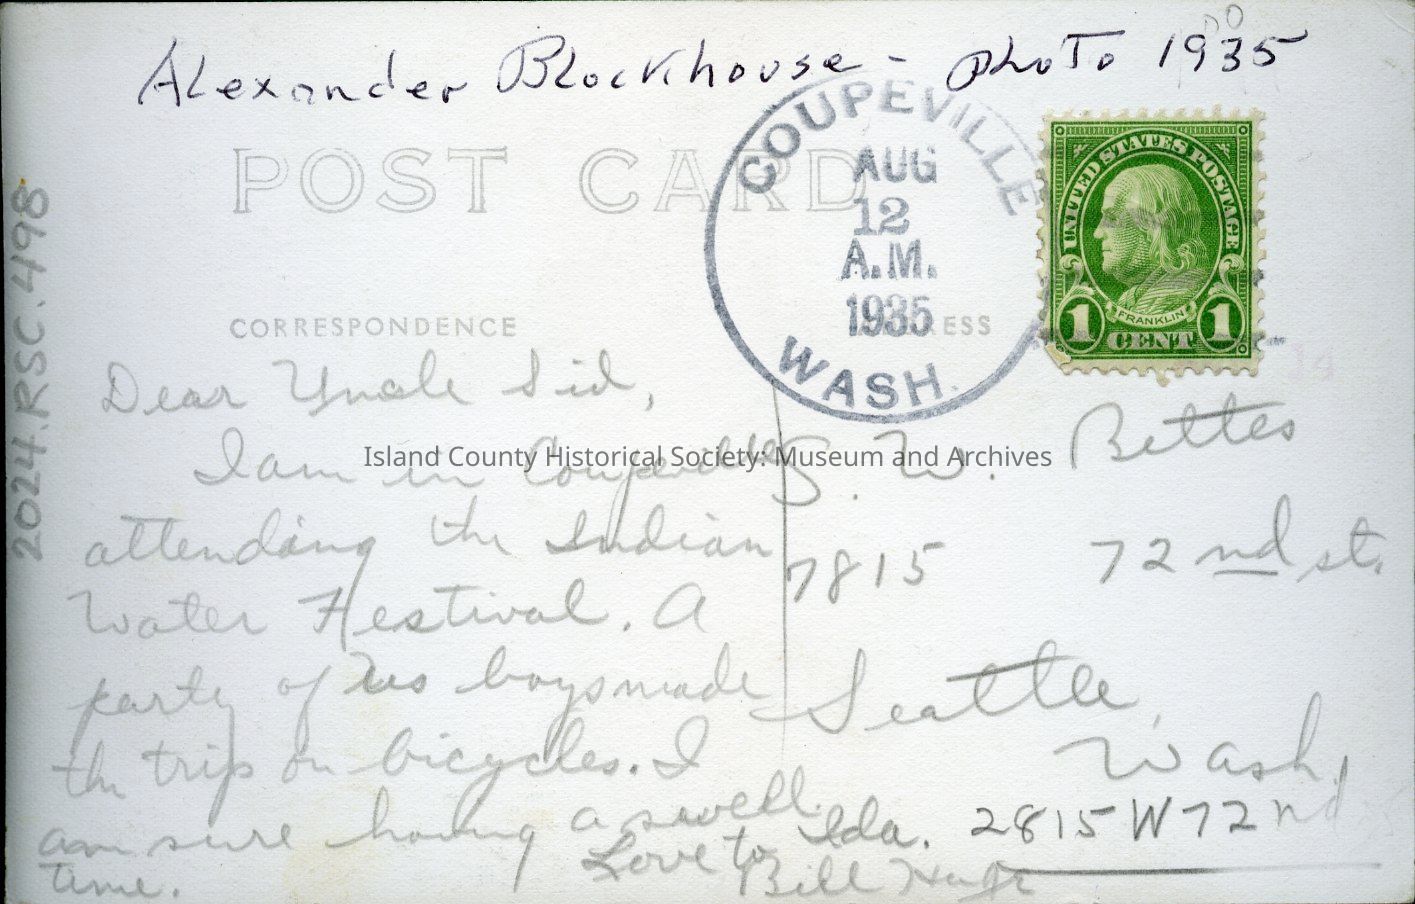 Alexander Blockhouse - photo 1935
POST CARD
COUPEVILLE
AUG
12
A.M.
1935
WASH.
UNITED STATES POSTAGE
FRANKLIN
1 CENT 1
2024.RSC.498
CORRESPONDENCE
Dear Uncle Sid,
I am in Coupeville
attending the Indian
Water Festival. A
party of us boys made
the trip on bicycles. I
am sure having a swell
time.
Love to Ida.
Bill
S. W. Bettes
7815 72nd st.
Seattle,
Wash.
2815 W 72nd
Island County Historical Society: Museum and Archives